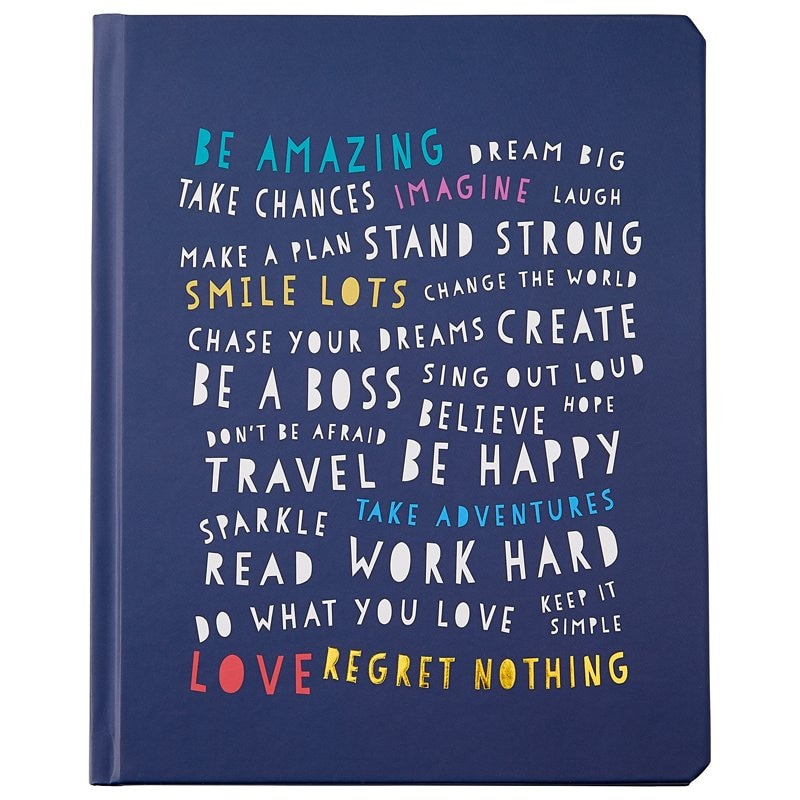 BE AMAZING DREAM BIG
TAKE CHANCES IMAGINE LAUGH
MAKE A PLAN STAND STRONG
SMILE LOTS CHANGE THE WORLD
CHASE YOUR DREAMS CREATE
BE A BOSS SING OUT LOUD
BELIEVE HOPE
DON'T BE AFRAID
TRAVEL BE HAPPY
SPARKLE TAKE ADVENTURES
READ WORK HARD
DO WHAT YOU LOVE KEEP IT
SIMPLE
LOVE REGRET NOTHING